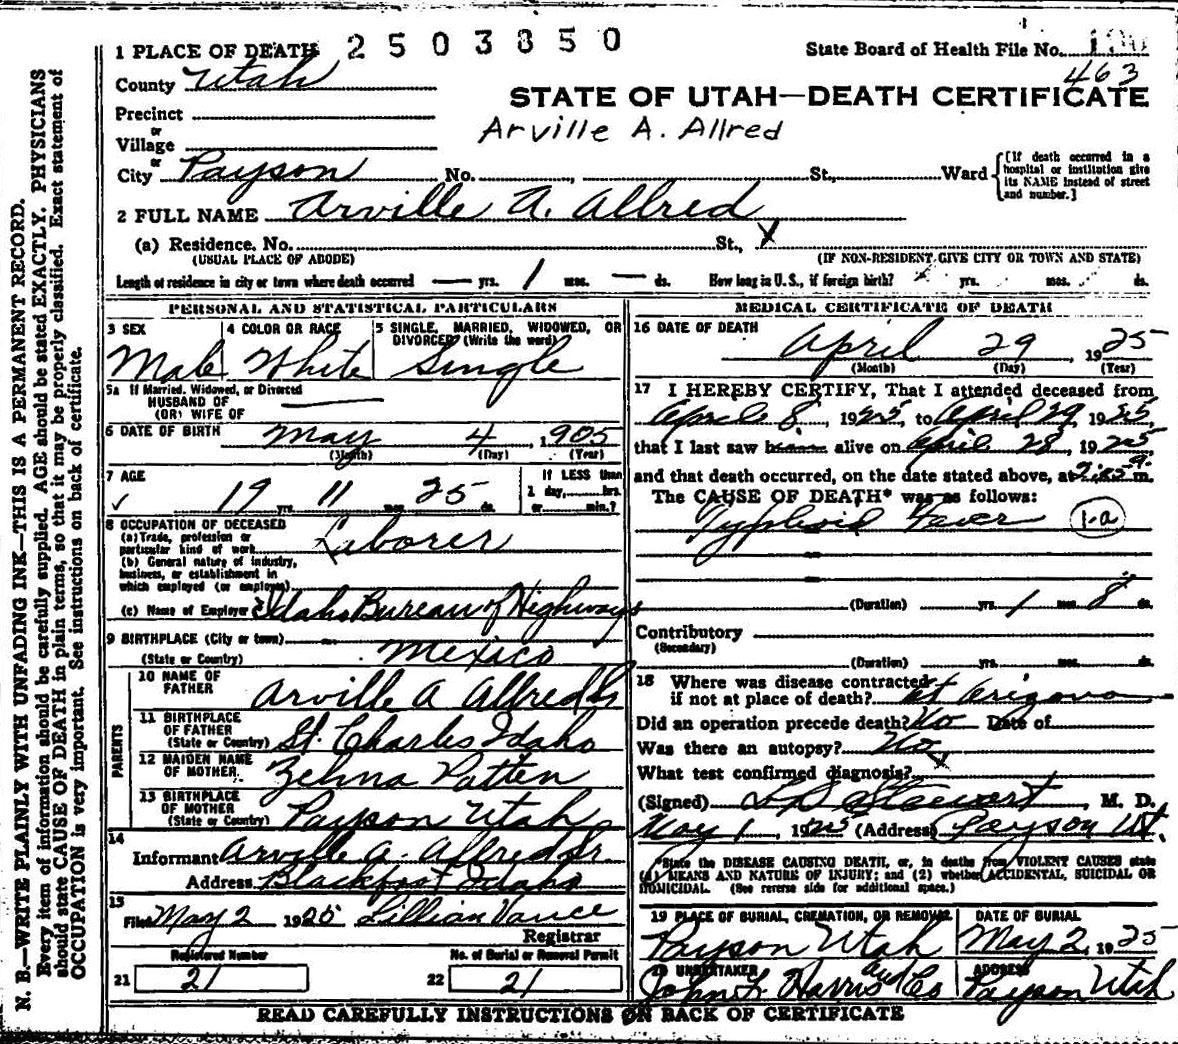 1 PLACE OF DEATH 2503850 State Board of Health File No. 190
County Utah 463
STATE OF UTAH—DEATH CERTIFICATE
Precinct
or
Village
Arville A. Allred
or
City Payson No. , St., Ward {[If death occurred in a hospital or institution give its NAME instead of street and number.]
2 FULL NAME Arville A. Allred
(a) Residence, No. St., X
(USUAL PLACE OF ABODE) (IF NON-RESIDENT GIVE CITY OR TOWN AND STATE)
Length of residence in city or town where death occurred — yrs. 1 mos. — ds. How long in U. S., if foreign birth? yrs. mos. ds.
PERSONAL AND STATISTICAL PARTICULARS
3 SEX 4 COLOR OR RACE 5 SINGLE, MARRIED, WIDOWED, OR DIVORCED (Write the word)
Male White Single
5a If Married, Widowed, or Divorced
HUSBAND OF
(OR) WIFE OF
6 DATE OF BIRTH May 4, 1905
(Month) (Day) (Year)
7 AGE If LESS than
19 yrs. 11 mos. 25 ds. 1 day, hrs.
or min.?
8 OCCUPATION OF DECEASED
(a) Trade, profession or
particular kind of work Laborer
(b) General nature of industry,
business, or establishment in
which employed (or employer)
(c) Name of Employer Idaho Bureau of Highways
9 BIRTHPLACE (City or town)
(State or Country) Mexico
PARENTS
10 NAME OF
FATHER Arville A Allred Sr
11 BIRTHPLACE
OF FATHER
(State or Country) St. Charles Idaho
12 MAIDEN NAME
OF MOTHER Zelma Patten
13 BIRTHPLACE
OF MOTHER
(State or Country) Payson Utah
14
Informant Arville A. Allred Sr.
Address Blackfoot Idaho
15
Filed May 2 1925 Lillian Vance
Registrar
Registered Number No. of Burial or Removal Permit
21 21 22 21
MEDICAL CERTIFICATE OF DEATH
16 DATE OF DEATH
April 29, 1925
(Month) (Day) (Year)
17 I HEREBY CERTIFY, That I attended deceased from
April 8, 1925, to April 29, 1925,
that I last saw him alive on April 28, 1925,
and that death occurred, on the date stated above, at m.
The CAUSE OF DEATH* was as follows:
Typhoid Fever 1-a
(Duration) yrs. 1 mos. 8 ds.
Contributory
(Secondary)
(Duration) yrs. mos. ds.
18 Where was disease contracted
if not at place of death? at Arizona
Did an operation precede death? No Date of
Was there an autopsy? No
What test confirmed diagnosis?
(Signed) L D Stewart, M. D.
May 1, 1925 (Address) Payson Ut.
*State the DISEASE CAUSING DEATH, or, in deaths from VIOLENT CAUSES state
(1) MEANS AND NATURE OF INJURY; and (2) whether ACCIDENTAL, SUICIDAL OR
HOMICIDAL. (See reverse side for additional space.)
19 PLACE OF BURIAL, CREMATION, OR REMOVAL DATE OF BURIAL
Payson Utah May 2, 1925
20 UNDERTAKER ADDRESS
John F Harris and Co Payson Utah
READ CAREFULLY INSTRUCTIONS ON BACK OF CERTIFICATE
N. B.—WRITE PLAINLY WITH UNFADING INK—THIS IS A PERMANENT RECORD.
Every item of information should be carefully supplied. AGE should be stated EXACTLY. PHYSICIANS
should state CAUSE OF DEATH in plain terms, so that it may be properly classified. Exact statement of
OCCUPATION is very important. See instructions on back of certificate.